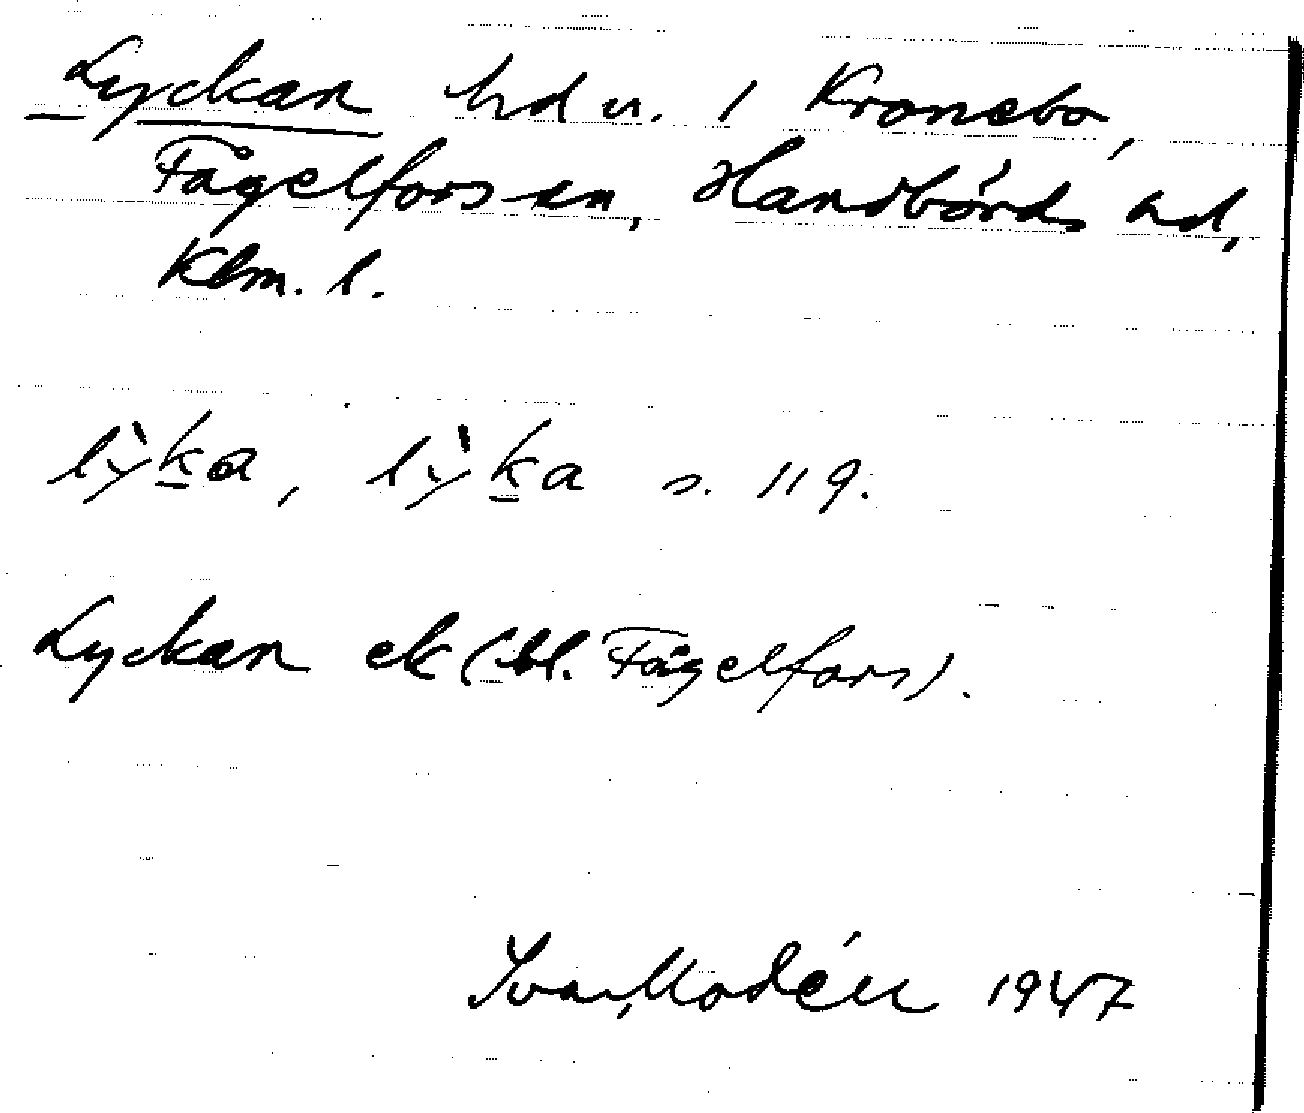 Lyckan hd u. 1 Kronebo,
Fågelfors sn, Handbörds hd,
Klm. l.
lỳka, lỳka s. 119.
Lyckan ek (bl. Fågelfors).
Ivar Modéer 1947